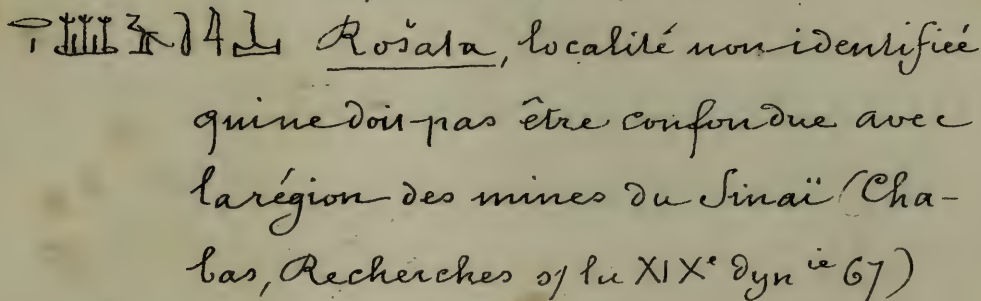 Rošata, localité non identifiée
qui ne doit pas être confondue avec
la région des mines du Sinaï (Cha-
bas, Recherches s/ la XIXe dynie 67)